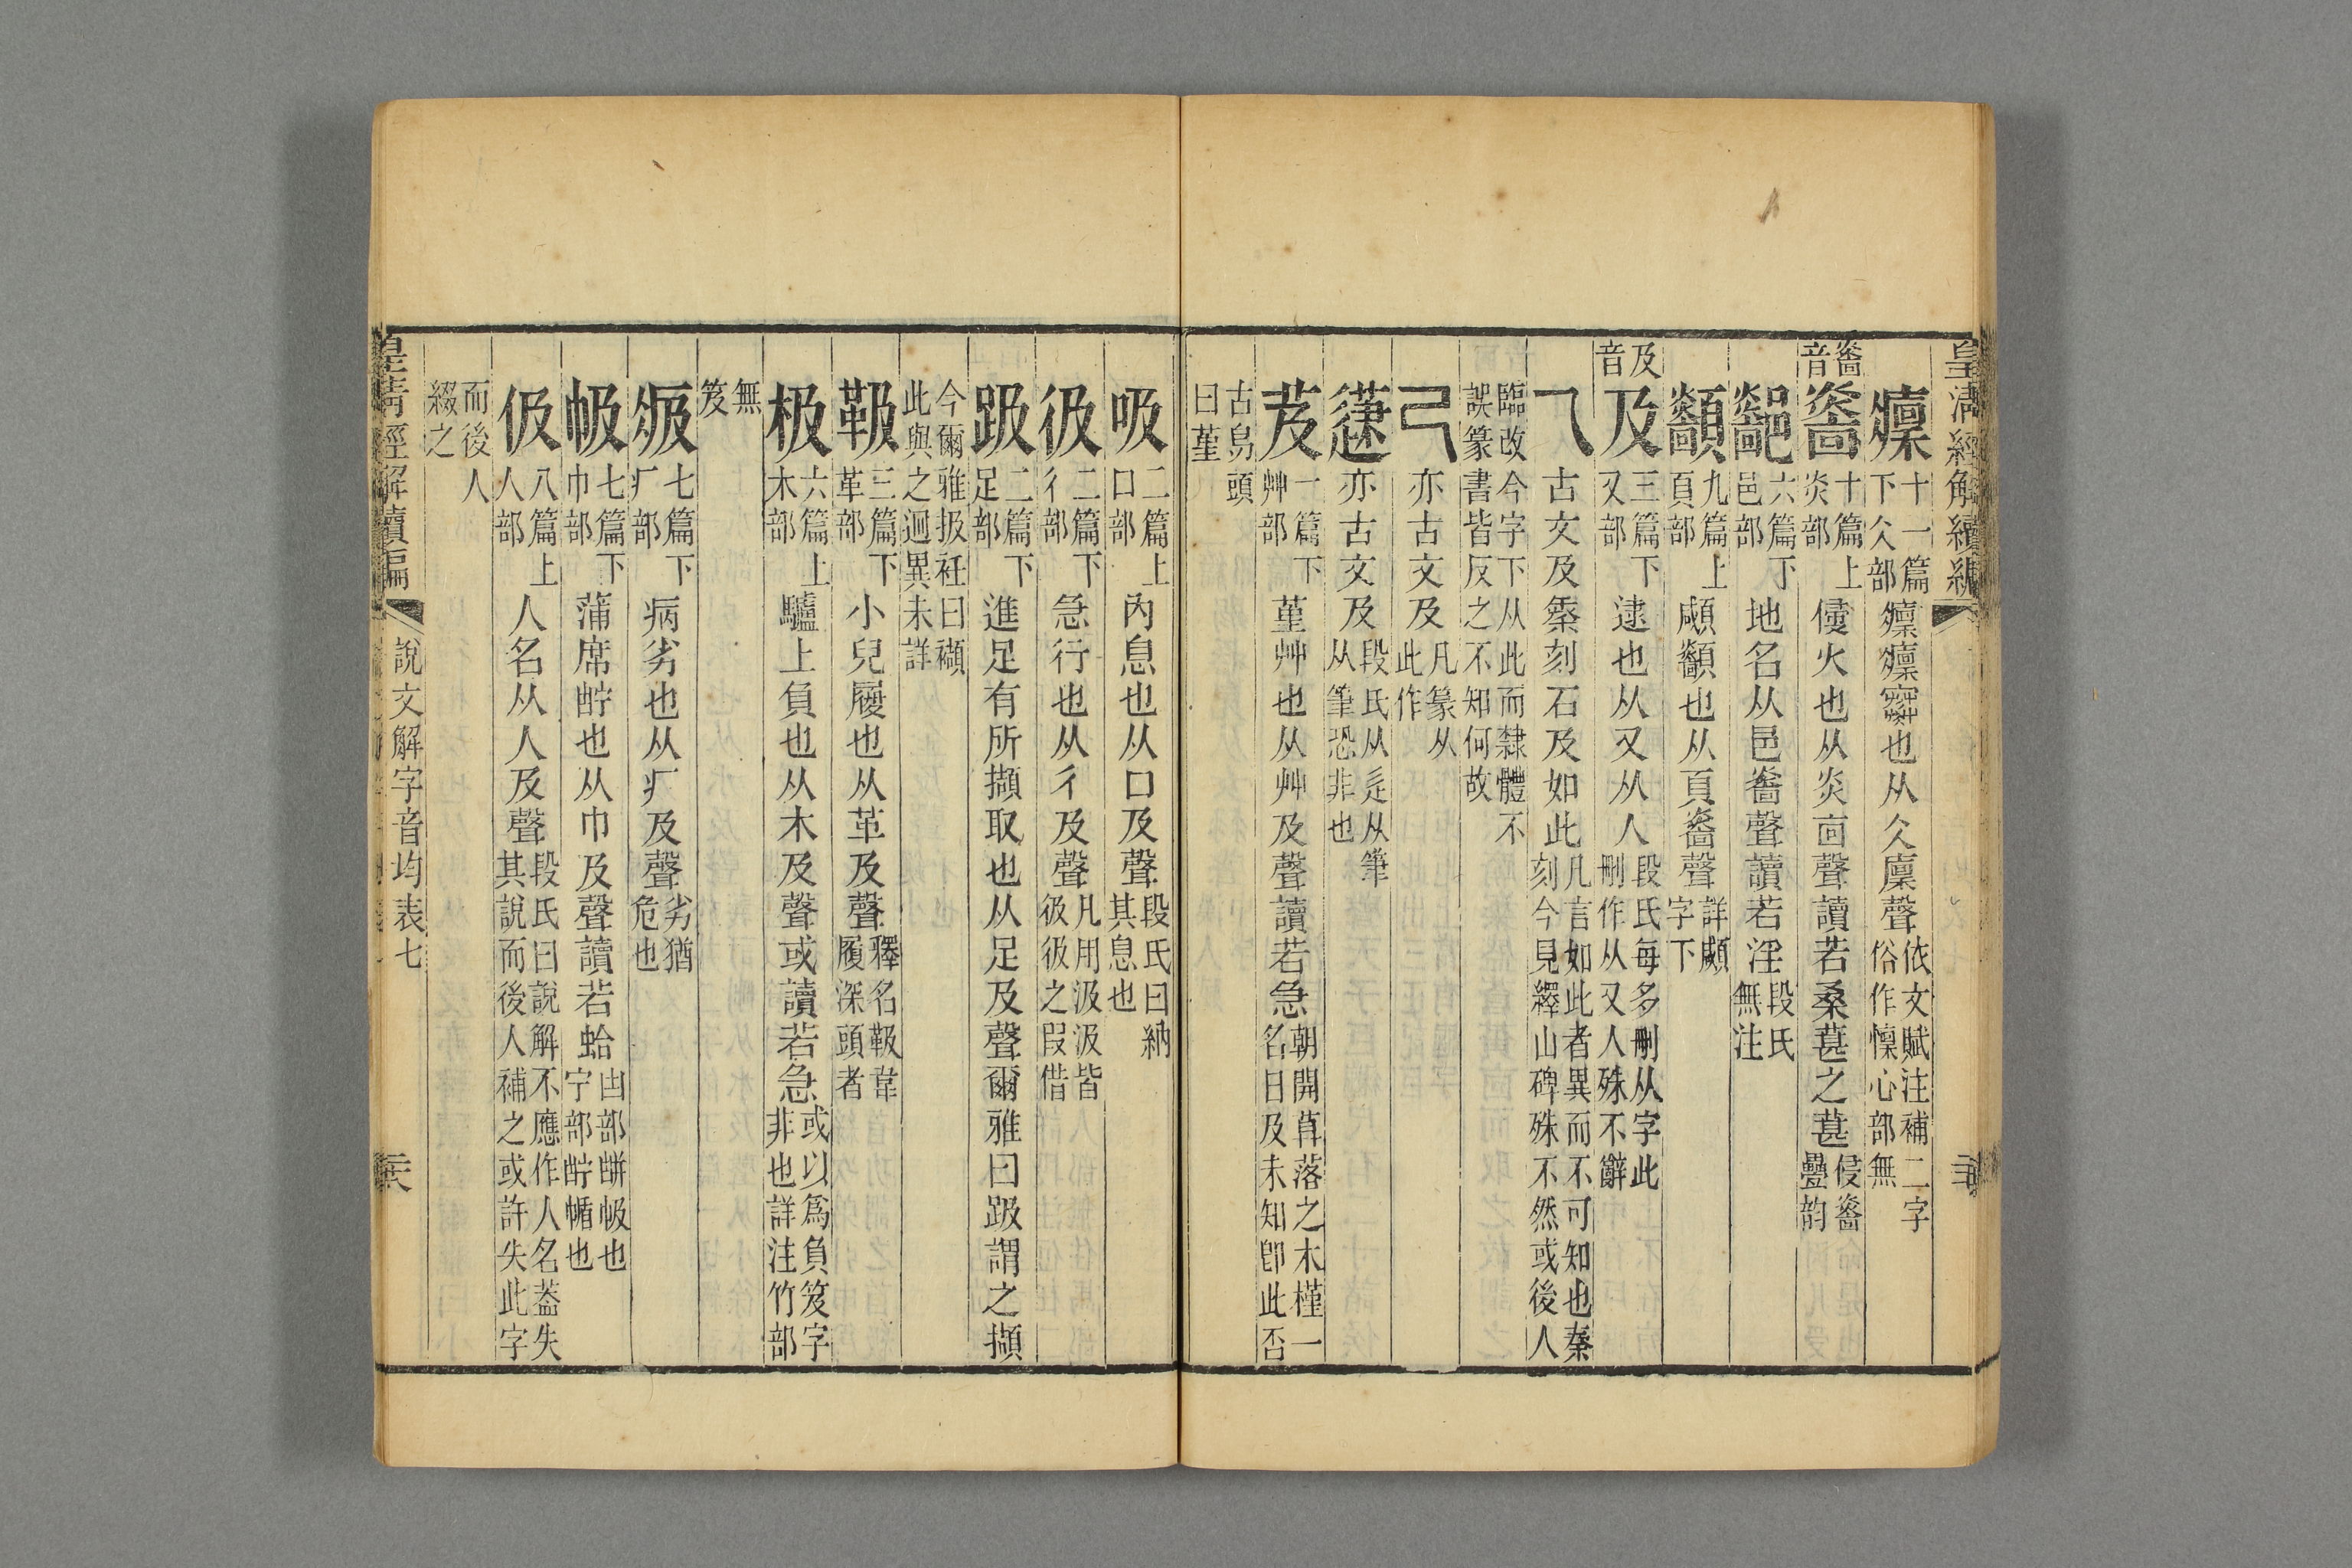 皇清經解續編
癛十一篇下仌部癛癛寒也从仌廩聲依文賦注補二字俗作懍心部無
㐭音
𤐫十篇上炎部侵火也从炎㐭聲讀若桑葚之葚侵𤐫疊韵
六篇下邑部地名从邑𤐫聲讀若淫段氏無注
九篇上頁部顑也从頁𤐫聲詳顑字下
及音
及三篇下又部逮也从又从人段氏每多刪从字此刪作从又人殊不辭
乁古文及秦刻石及如此凡言如此者異而不可知也秦刻今見繹山碑殊不然或後人
臨改今字下从此而隸體不誤篆書皆反之不知何故
亦古文及凡篆从此作
亦古文及段氏从辵从筆从筆恐非也
芨一篇下艸部堇艸也从艸及聲讀若急朝開暮落之木槿一名日及未知卽此否
古舄頭曰堇
吸二篇上口部內息也从口及聲段氏曰納其息也
彶二篇下彳部急行也从彳及聲凡用汲汲皆彶彶之叚借
趿二篇下足部進足有所擷取也从足及聲爾雅曰趿謂之擷
今爾雅扱衽曰襭此與之迥異未詳
靸三篇下革部小兒履也从革及聲釋名靸韋履深頭者
极六篇上木部驢上負也从木及聲或讀若急或以爲負笈字非也詳注竹部
無笈
疲七篇下疒部病劣也从疒及聲劣猶危也
㠷七篇下巾部蒲席𣂁也从巾及聲讀若蛤甾部㠷也宁部𣂁㡒也
伋八篇上人部人名从人及聲段氏曰說解不應作人名葢失其說而後人補之或許失此字
而後人綴之
皇清經解續編
說文解字音均表七